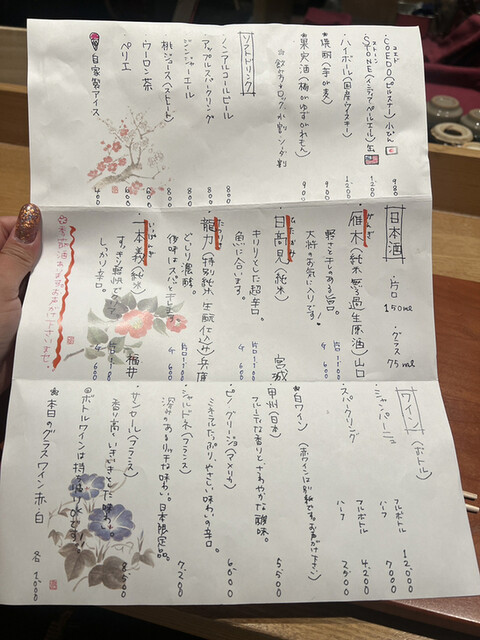 COEDO(ピルスナー)小びん 980
STONE(インディアペールエール)缶 1,200
ハイボール(国産ウイスキー) 1,200
焼酎(芋or麦) 900
果実酒(梅orゆずorれもん) 900
☆飲み方:ロック、水割、ソーダ割
ソフトドリンク
ノンアルコールビール 800
アップルスパークリング 800
ジンジャーエール 800
桃ジュース(ストレート) 800
ウーロン茶 600
ペリエ 600
自家製アイス 400
日本酒 ・片口 150ml ・グラス 75ml
がんぎ
雁木(純米 無ろ過生原酒)山口
軽さとキレのある旨口。
大将のお気に入りです♥
ひたかみ
日高見(純米) 宮城
キリリとした超辛口。
魚に合います。
たつりき
龍力(特別純米 生酛仕込み)兵庫
どっしり濃醇。
後味はスパッとキレます。
いっぽんぎ
一本義(純米) 福井
すっきり軽快でクリア。
しっかり辛口。
ワイン (ボトル)
シャンパーニュ フルボトル 12,000
ハーフ 7,000
スパークリング フルボトル 4,200
ハーフ
白ワイン (赤ワインは別紙です。お声がけ下さい)
甲州(日本) 5,500
フルーティな香りとさわやかな酸味。
ピノ・グリージョ(アメリカ) 6,000
ミネラルたっぷり、やさしい味わいの辛口。
シャルドネ(フランス) 7,200
深みのあるリッチな味わい。日本限定品。
サンセール(フランス) 8,500
香り高く、いきいきとした味わい。
◎ボトルワインは持ち帰りOKです!
本日のグラスワイン 赤・白 各1,000